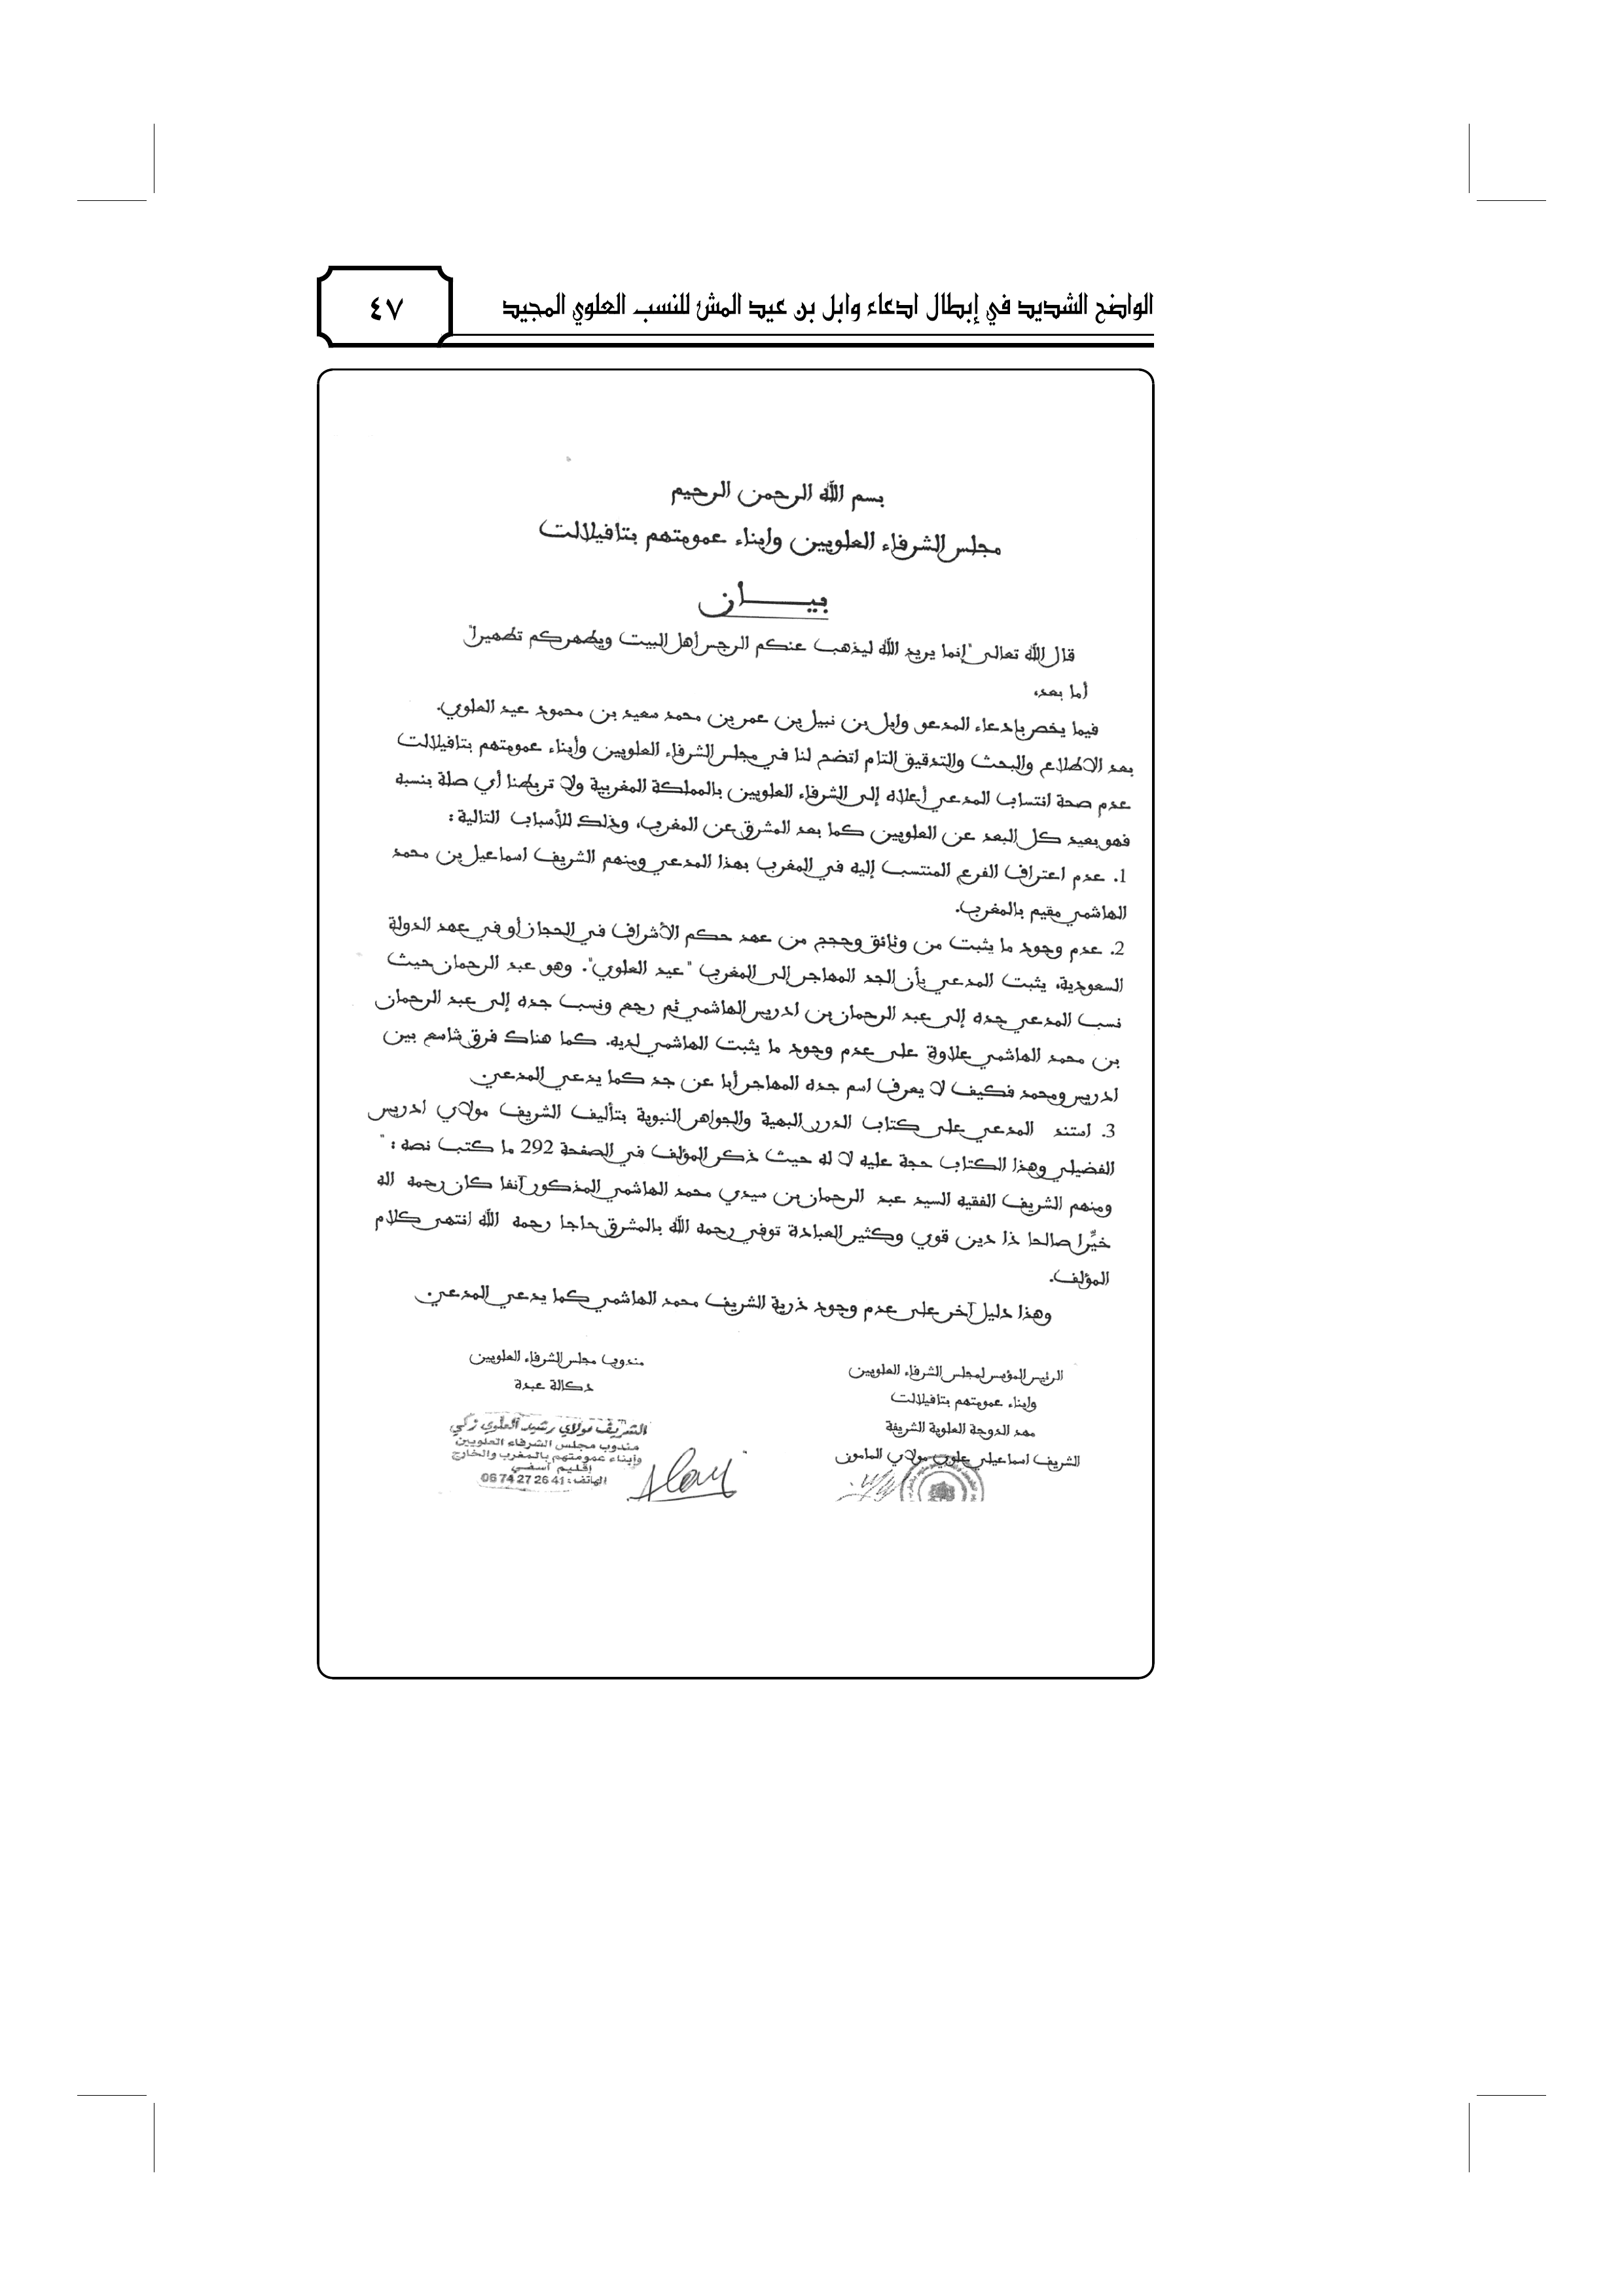 الواضح الشديد في إبطال ادعاء وابل بن عيد المش للنسب العلوي المجيد
٤٧
بسم الله الرحمن الرحيم
مجلس الشرفاء العلويين وابناء عمومتهم بتافيلالت
بيـــــان
قال الله تعالى "إنما يريد الله ليذهب عنكم الرجس أهل البيت ويطهركم تطهيرا"
أما بعد،
فيما يخص بإدعاء المدعو وابل بن نبيل بن عمر بن محمد سعيد بن محمود عيد العلوي.
بعد الاطلاع والبحث والتدقيق التام اتضح لنا في مجلس الشرفاء العلويين وأبناء عمومتهم بتافيلالت
عدم صحة انتساب المدعي أعلاه إلى الشرفاء العلويين بالمملكة المغربية ولا تربطنا أي صلة بنسبه
فهو بعيد كل البعد عن العلويين كما بعد المشرق عن المغرب، وذلك للأسباب التالية :
1. عدم اعتراف الفرع المنتسب إليه في المغرب بهذا المدعي ومنهم الشريف اسماعيل بن محمد
الهاشمي مقيم بالمغرب.
2. عدم وجود ما يثبت من وثائق وحجج من عهد حكم الأشراف في الحجاز أو في عهد الدولة
السعودية، يثبت المدعي بأن الجد المهاجر إلى المغرب "عيد العلوي". وهو عبد الرحمان حيث
نسب المدعي جده إلى عبد الرحمان بن ادريس الهاشمي ثم رجع ونسب جده إلى عبد الرحمان
بن محمد الهاشمي علاوة على عدم وجود ما يثبت الهاشمي لديه. كما هناك فرق شاسع بين
ادريس ومحمد فكيف لا يعرف اسم جده المهاجر أبا عن جد كما يدعي المدعي
3. استند المدعي على كتاب الدرر البهية والجواهر النبوية بتأليف الشريف مولاي ادريس
الفضيلي وهذا الكتاب حجة عليه لا له حيث ذكر المؤلف في الصفحة 292 ما كتب نصه : "
ومنهم الشريف الفقيه السيد عبد الرحمان بن سيدي محمد الهاشمي المذكور آنفا كان رحمه اله
خيِّرا صالحا ذا دين قوي وكثير العبادة توفي رحمه الله بالمشرق حاجا رحمه الله انتهى كلام
المؤلف.
وهذا دليل آخر على عدم وجود ذرية الشريف محمد الهاشمي كما يدعي المدعي
الرئيس المؤسس لمجلس الشرفاء العلويين
وابناء عمومتهم بتافيلالت
مهد الدوحة العلوية الشريفة
الشريف اسماعيلي علوي مولاي المامون
مندوب مجلس الشرفاء العلويين
دكالة عبدة
الشريف مولاي رشيد العلوي زكي
مندوب مجلس الشرفاء العلويين
وأبناء عمومتهم بالمغرب والخارج
إقليم آسفي
الهاتف : 06 74 27 26 41